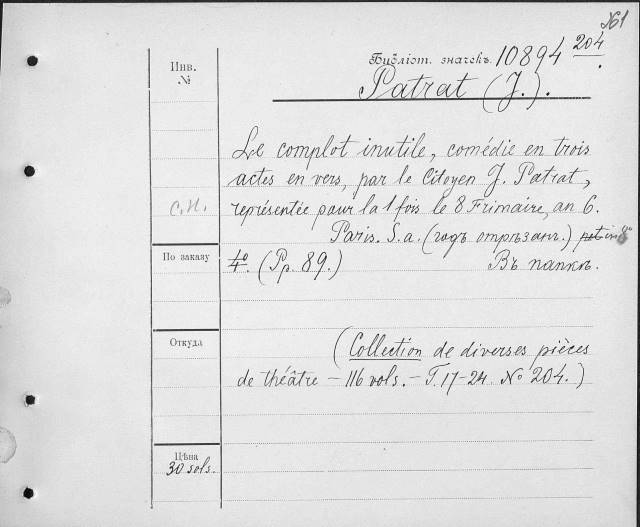 161
Библіот. значекъ. 10894 204.
Инв.
№
Patrat (J.).
Le complot inutile, comédie en trois
actes en vers, par le Citoyen J. Patrat,
С.И.
représentée pour la 1 fois le 8 Frimaire, an 6.
Paris. S. a. (годъ отрѣзанъ.) petit in 8°
По заказу
4°. (Pp. 89.) Въ папкѣ.
Откуда
(Collection de diverses pièces
de théâtre – 116 vols. – T. 17-24. № 204.)
Цѣна
30 sols.